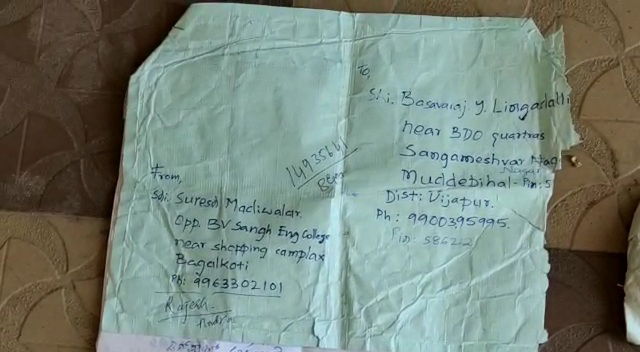 To,
Shi. Basavaraj y. Lingadalli
near BDO quartras
Sangameshvar Nag
Nagar
Muddebihal - Pin: 5
Dist: Vijapur.
Ph: 9900395995.
Pin: 586212
1493564
From,
Sdi. Suresh Madiwalar.
Opp. BV Sangh Eng College
near shopping camplax
Bagalkoti
Ph: 9963302101
Rajesh